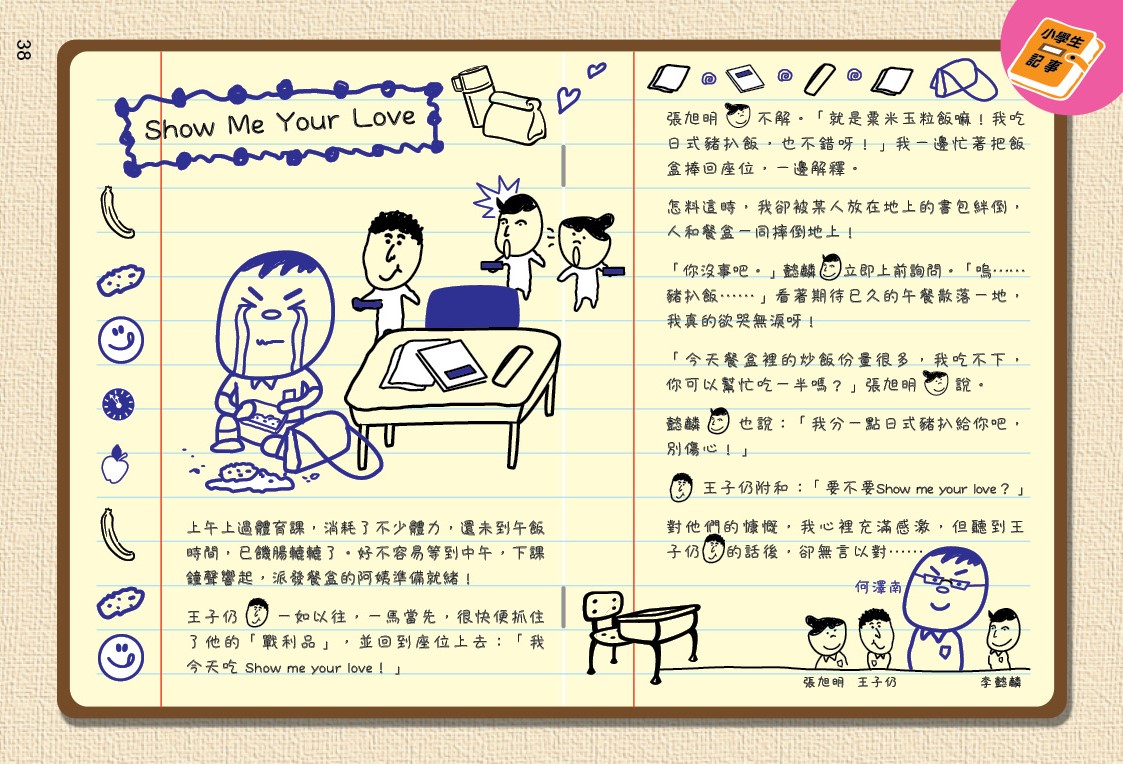 38
小學生
記事
Show Me Your Love
上午上過體育課，消耗了不少體力，還未到午飯
時間，已饑腸轆轆了。好不容易等到中午，下課
鐘聲響起，派發餐盒的阿姨準備就緒！
王子仍 一如以往，一馬當先，很快便抓住
了他的「戰利品」，並回到座位上去：「我
今天吃 Show me your love！」
張旭明 不解。「就是粟米玉粒飯嘛！我吃
日式豬扒飯，也不錯呀！」我一邊忙著把飯
盒捧回座位，一邊解釋。
怎料這時，我卻被某人放在地上的書包絆倒，
人和餐盒一同摔倒地上！
「你沒事吧。」懿麟 立即上前詢問。「嗚……
豬扒飯……」看著期待已久的午餐散落一地，
我真的欲哭無淚呀！
「今天餐盒裡的炒飯份量很多，我吃不下，
你可以幫忙吃一半嗎？」張旭明 說。
懿麟 也說：「我分一點日式豬扒給你吧，
別傷心！」
王子仍附和：「要不要Show me your love？」
對他們的慷慨，我心裡充滿感激，但聽到王
子仍 的話後，卻無言以對……
何澤南
張旭明 王子仍 李懿麟